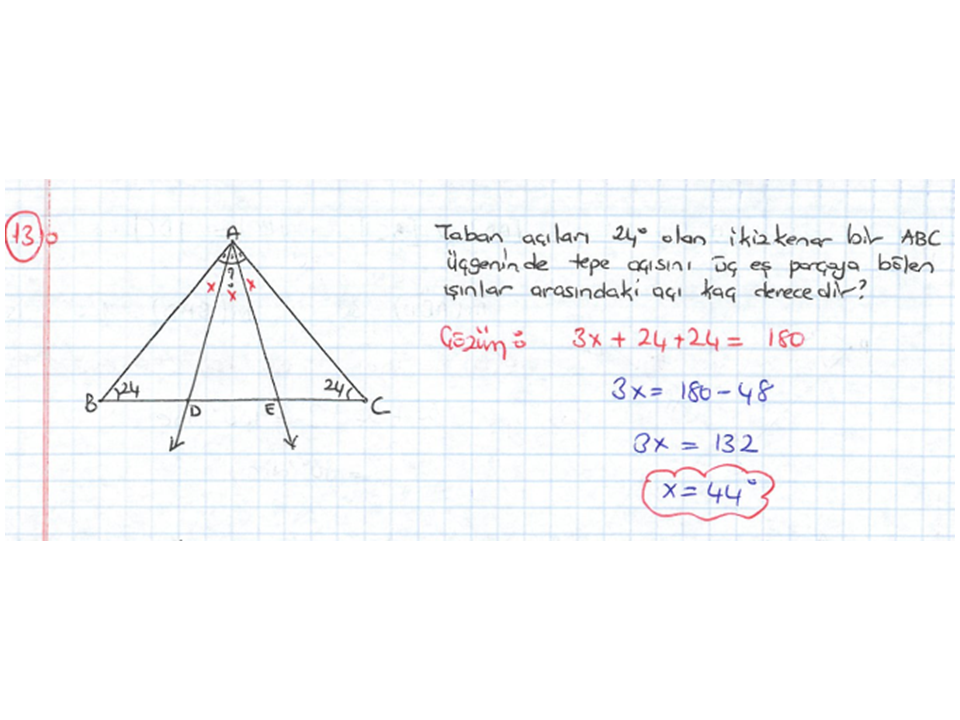 13)
Taban açıları 24° olan ikizkenar bir ABC
üçgeninde tepe açısını üç eş parçaya bölen
ışınlar arasındaki açı kaç derecedir?
Çözüm:
3x + 24 + 24 = 180
3x = 180 - 48
3x = 132
x = 44°
A
?
x
x
x
B
24
24
C
D
E